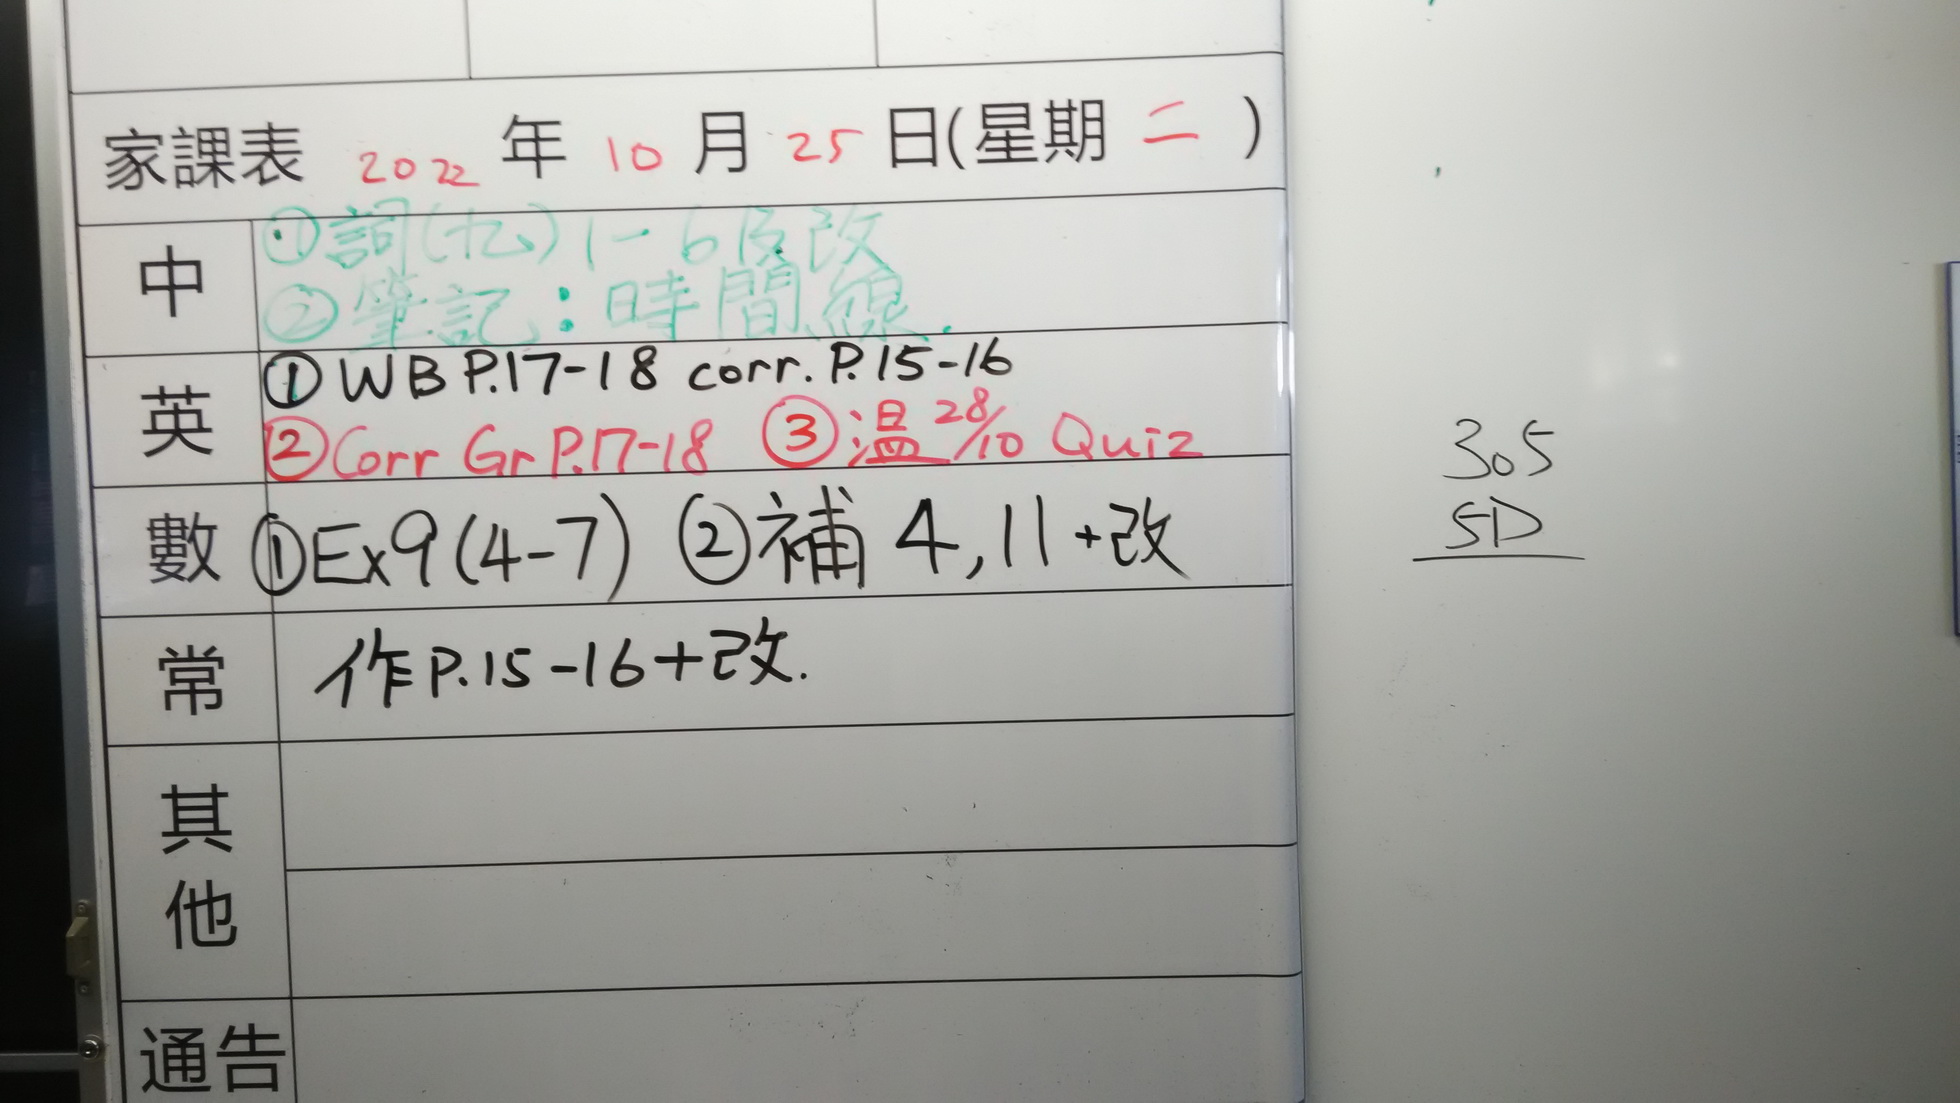 家課表 2022 年 10 月 25 日(星期 二 )
中 ①詞(九) 1-6及改
②筆記:時間線.
英 ①WB P.17-18 corr. P.15-16
②Corr Gr P.17-18 ③温 28/10 Quiz
數 ①Ex9(4-7) ②補 4,11+改
常 作P.15-16+改.
其他
通告
305
5D